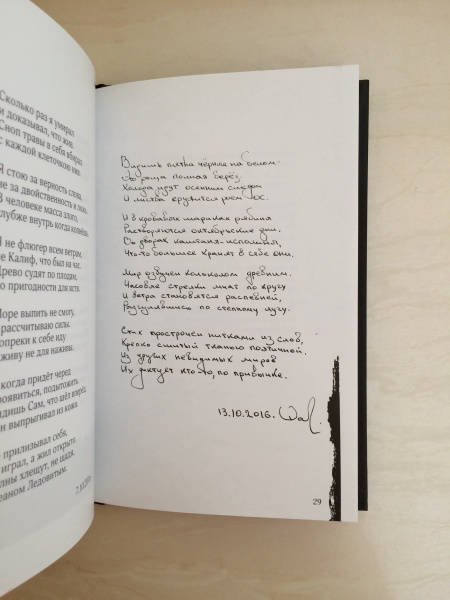 Сколько раз я умирал
и доказывал, что жив.
Сноп травы в себя вбирал
с каждой клеточкою
Я стою за верность слова,
не за двойственность и
В человеке масса злого,
глубже внутрь когда
Я не флюгер всем ветрам,
не Калиф, что был на час.
Древо судят по плодам,
по пригодности для
Море выпить не смогу,
рассчитываю силы.
вопреки к себе
живу не для наживы.
когда придёт черед
проявиться, подытожить
Сам, что шёл вперёд,
выпрыгивал из кожи.
прилизывал себя,
играл, а жил открыто
хлещут, не щадя,
Ледовитым.
Видишь пятна чёрные на белом
Это роща полная берёз.
Холода идут осенним следом
И листва кружится
И в кровавых маранах рябина
Растворяются октябрьские дни.
Во дворах каштаны-исполины,
Что-то большее хранят в себе они.
Мир озвучен колоколом древним.
Часовые стрелки мчат по кругу
И ветра становятся распевней,
Разгулявшись по степному лугу.
Стих прострочен нитками из слов,
Крепко сшитый тканью поэтичной.
Из других невидимых миров
Их диктует кто-то, по привычке.
13.10.2016.
29